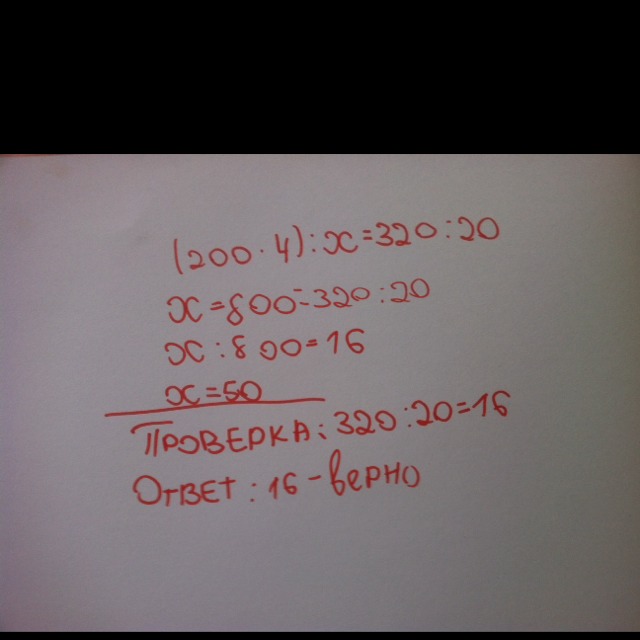 (200 · 4) : x = 320 : 20
x = 800 = 320 : 20
x : 800 = 16
x = 50
ПРОВЕРКА: 320 : 20 = 16
ОТВЕТ : 16 - верно